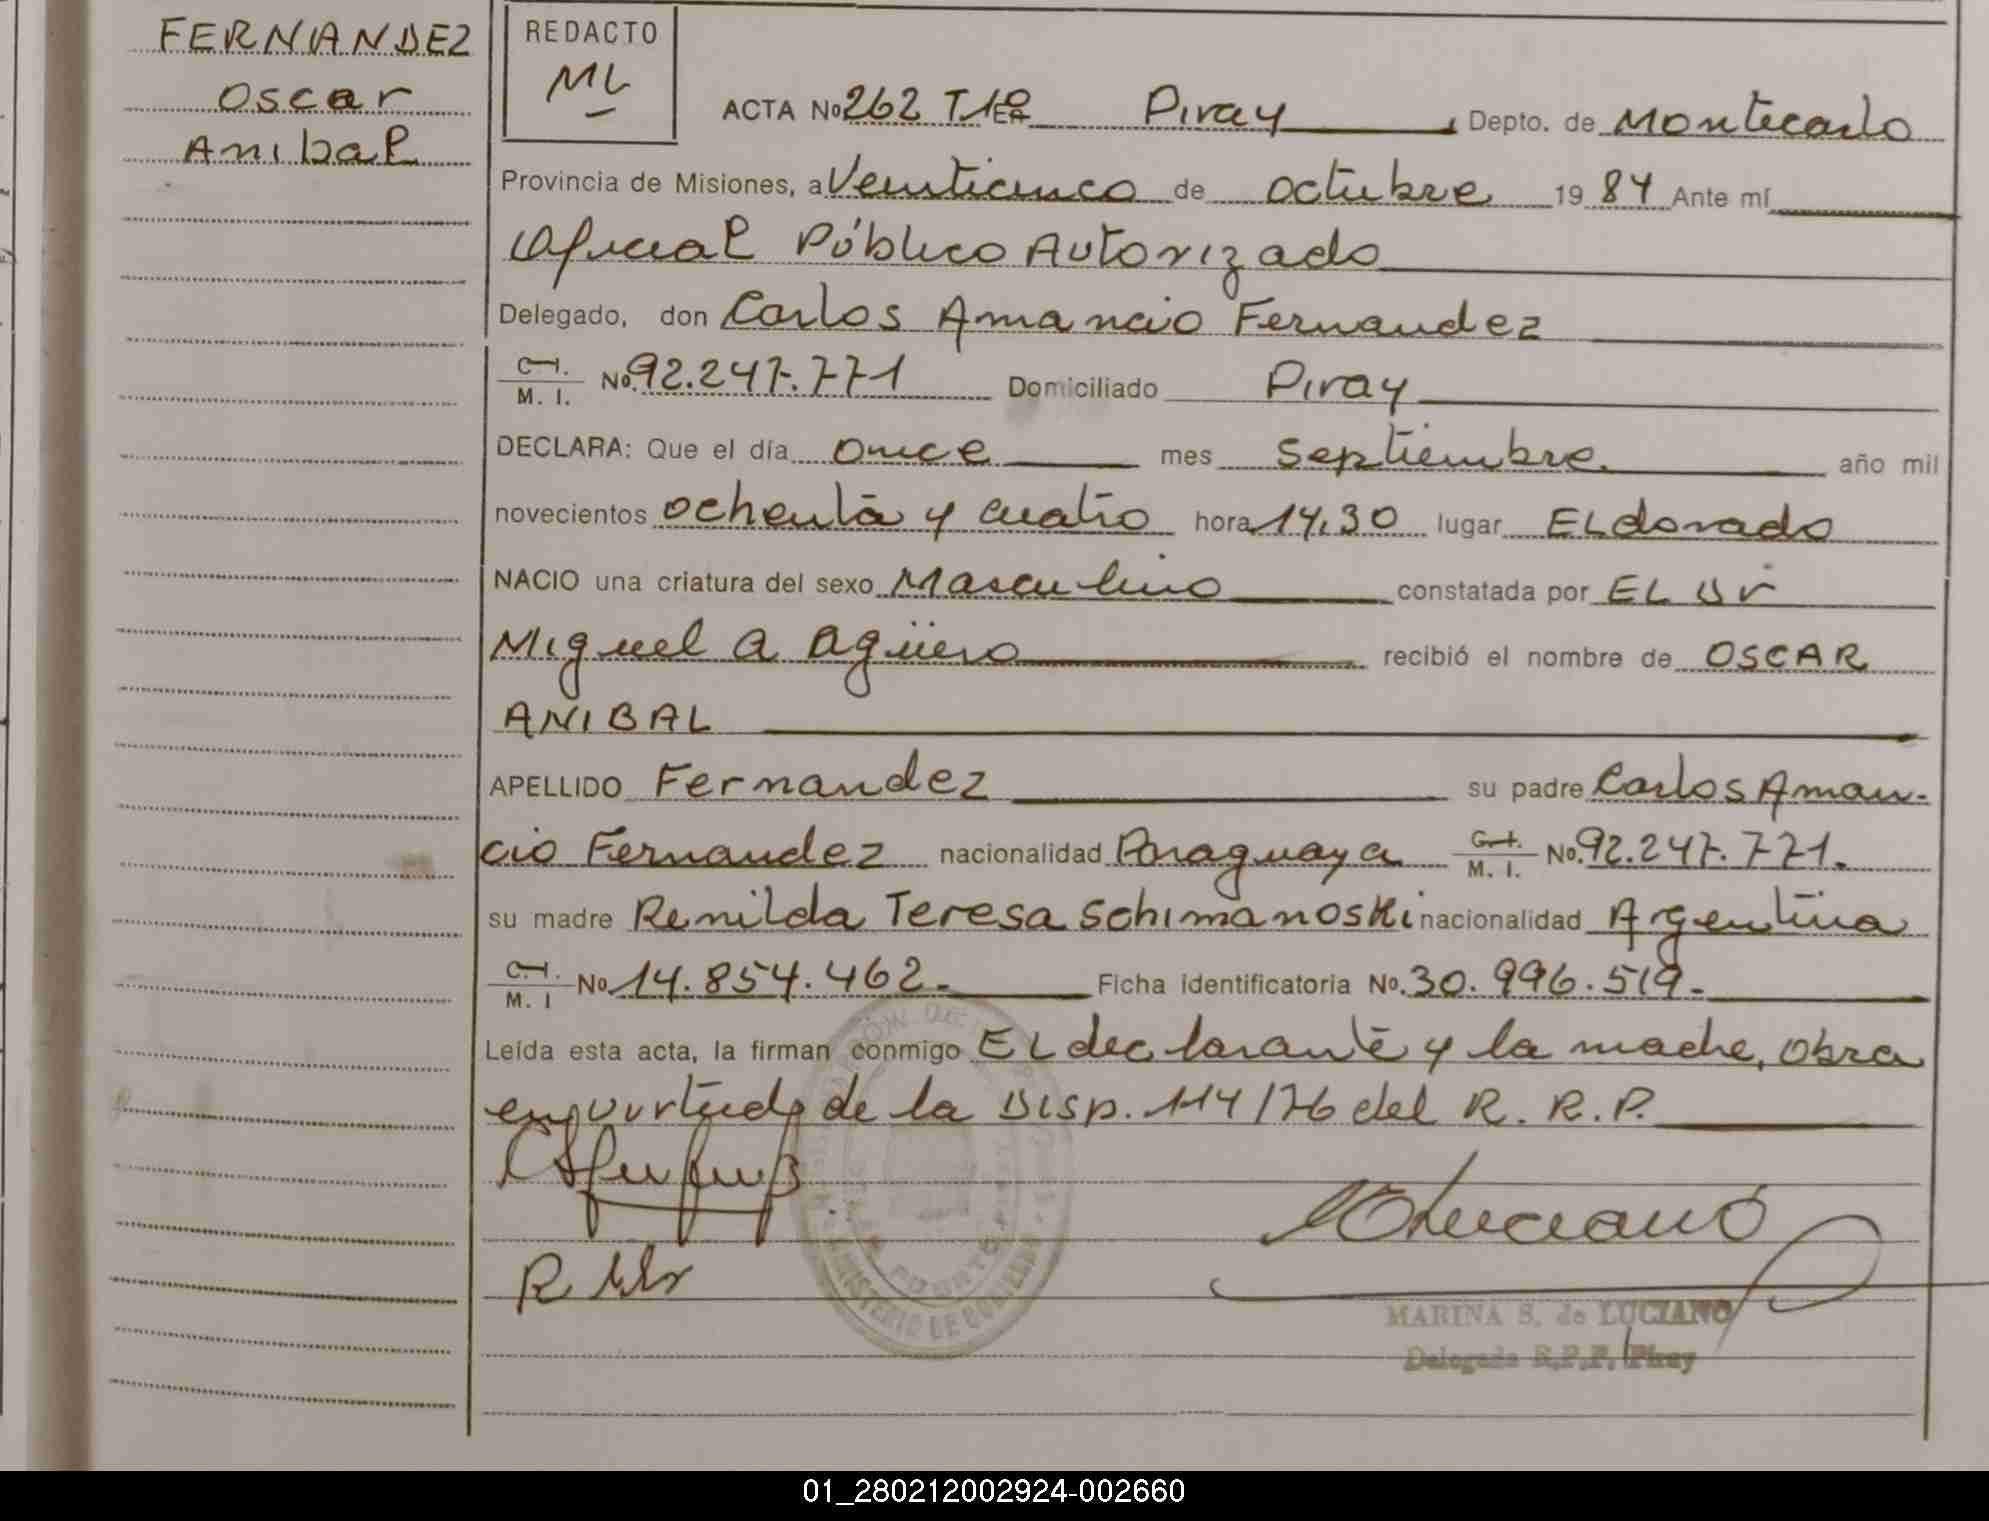 FERNANDEZ
Oscar
Anibal
REDACTO
ML
ACTA No 262 T1º En Piray Depto. de Montecarlo
Provincia de Misiones, a Veinticinco de octubre 1984 Ante mí
Oficial Público Autorizado
Delegado, don Carlos Amancio Fernandez
C.I. / M. I. No. 92.247.771 Domiciliado Piray
DECLARA: Que el día once mes septiembre año mil
novecientos ochenta y cuatro hora 14,30 lugar ELdorado
NACIO una criatura del sexo Masculino constatada por EL Dr
Miguel A Agüero recibió el nombre de OSCAR
ANIBAL
APELLIDO Fernandez su padre Carlos Aman-
cio Fernandez nacionalidad Paraguaya C.I. / M. I. No. 92.247.771.
su madre Remilda Teresa Schimanoski nacionalidad Argentina
C.I. / M. I No 14.854.462.- Ficha identificatoria No. 30.996.519.-
Leída esta acta, la firman conmigo EL declarante y la madre, Obra
en virtud de la Disp. 114/76 del R. R. P.
Luciano
MINISTERIO DE GOBIERNO
MARINA S. de LUCIANO
Delegada R.P.P. Piray
01_280212002924-002660